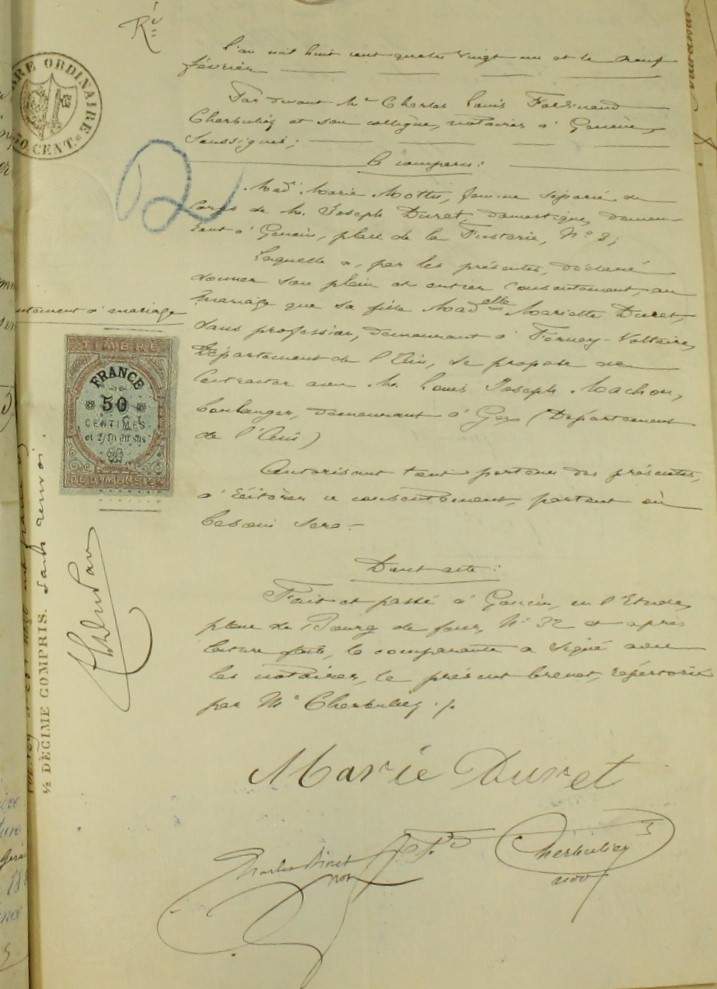 Ré
L'an mil huit cent quatre vingt un et le neuf
février
Par devant Me Charles Louis Ferdinand
Cherbuliez et son collègue, notaires à Genève,
Soussignés;
A comparu:
Made Marie Mottu, femme séparée de
corps de M. Joseph Duret, domestique, demeu-
rant à Genève, place de la Fusterie, No 2;
Laquelle a, par les présentes, déclaré
donner son plein et entier consentement, au
mariage que sa fille Madelle Mariette Duret,
sans profession, demeurant à Ferney-Voltaire,
Département de l'Ain, se propose de
contracter avec M. Louis Joseph Machon,
boulanger, demeurant à Gex (Département
de l'Ain)
Autorisant tout porteur des présentes,
à réitérer ce consentement, partout où
besoin sera.-
Dont acte:
Fait et passé à Genève, en l'Etude,
place du Bourg de four, No 32 et après
lecture faite, la comparante a signé avec
les notaires, le présent brevet, répertorié
par Me Cherbuliez ./.
Marie Duret
Charles Binet
not
Cherbuliez
not
ORDINAIRE
50 CENT.
2
consentement à mariage
TIMBRE
FRANCE
50
CENTIMES
et 2/10 en sus
DE DIMENSION
½ DÉCIME COMPRIS. sans renvoi.